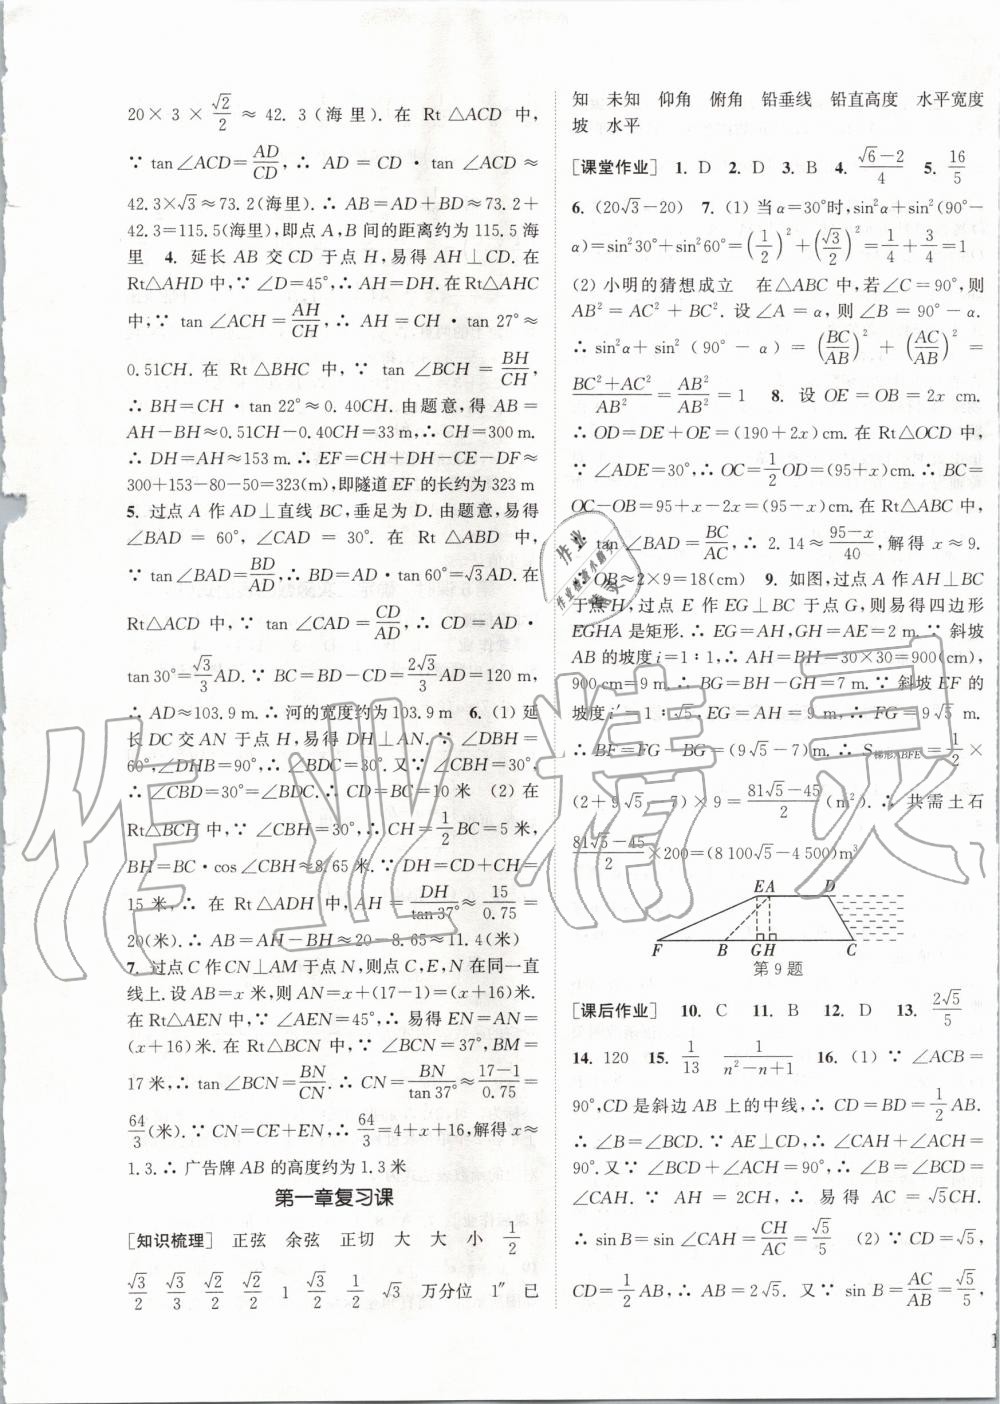 20×3×√2/2≈42.3(海里).在 Rt△ACD 中,
∵ tan∠ACD=AD/CD,∴ AD=CD·tan∠ACD≈
42.3×√3≈73.2(海里).∴ AB=AD+BD≈73.2+
42.3=115.5(海里),即点 A,B 间的距离约为 115.5 海
里 4. 延长 AB 交 CD 于点 H,易得 AH⊥CD.在
Rt△AHD 中,∵ ∠D=45°,∴ AH=DH.在 Rt△AHC
中,∵ tan∠ACH=AH/CH,∴ AH=CH·tan 27°≈
0.51CH.在 Rt△BHC 中,∵ tan∠BCH=BH/CH,
∴ BH=CH·tan 22°≈0.40CH.由题意,得 AB=
AH-BH≈0.51CH-0.40CH=33 m,∴ CH=300 m.
∴ DH=AH≈153 m.∴ EF=CH+DH-CE-DF≈
300+153-80-50=323(m),即隧道 EF 的长约为 323 m
5. 过点 A 作 AD⊥直线 BC,垂足为 D.由题意,易得
∠BAD=60°,∠CAD=30°.在 Rt△ABD 中,
∵ tan∠BAD=BD/AD,∴ BD=AD·tan 60°=√3AD.在
Rt△ACD 中,∵ tan∠CAD=CD/AD,∴ CD=AD·
tan30°=√3/3AD.∵ BC=BD-CD=2√3/3AD=120 m,
∴ AD≈103.9 m.∴ 河的宽度约为 103.9 m 6. (1) 延
长 DC 交 AN 于点 H.易得 DH⊥AN.∵ ∠DBH=
60°,∠DHB=90°,∴ ∠BDC=30°.又∵ ∠CBH=30°,
∴ ∠CBD=30°=∠BDC.∴ CD=BC=10 米 (2) 在
Rt△BCH 中,∵ ∠CBH=30°,∴ CH=1/2BC=5 米,
BH=BC·cos∠CBH≈8.65 米.∵ DH=CD+CH=
15 米,∴ 在 Rt△ADH 中,AH=DH/tan37°≈15/0.75=
20(米).∴ AB=AH-BH≈20-8.65≈11.4(米)
7. 过点 C 作 CN⊥AM 于点 N,则点 C,E,N 在同一直
线上.设 AB=x 米,则 AN=x+(17-1)=(x+16)米.
在 Rt△AEN 中,∵ ∠AEN=45°,∴ 易得 EN=AN=
(x+16)米.在 Rt△BCN 中,∵ ∠BCN=37°,BM=
17 米,∴ tan∠BCN=BN/CN.∴ CN=BN/tan 37°≈17-1/0.75=
64/3(米).∵ CN=CE+EN,∴ 64/3=4+x+16,解得 x≈
1.3.∴ 广告牌 AB 的高度约为 1.3 米
第一章复习课
[知识梳理] 正弦 余弦 正切 大 大 小 1/2
√3/2 √3/3 √2/2 √2/2 1 √3/2 1/2 √3 万分位 1″ 已
知 未知 仰角 俯角 铅垂线 铅直高度 水平宽度
坡 水平
[课堂作业] 1. D 2. D 3. B 4. √6-2/4 5. 16/5
6. (20√3-20) 7. (1) 当 α=30°时,sin²α+sin²(90°-
α)=sin²30°+sin²60°=(1/2)²+(√3/2)²=1/4+3/4=1
(2) 小明的猜想成立 在△ABC 中,若∠C=90°,则
AB²=AC²+BC².设∠A=α,则∠B=90°-α.
∴ sin²α+sin²(90°-α)=(BC/AB)²+(AC/AB)²=
BC²+AC²/AB²=AB²/AB²=1 8. 设 OE=OB=2x cm.
∴ OD=DE+OE=(190+2x)cm.在 Rt△OCD 中,
∵ ∠ADE=30°,∴ OC=1/2OD=(95+x)cm.∴ BC=
OC-OB=95+x-2x=(95-x)cm.在 Rt△ABC 中,
∵ tan∠BAD=BC/AC,∴ 2.14≈95-x/40,解得 x≈9.
∴ OB≈2×9=18(cm) 9. 如图,过点 A 作 AH⊥BC
于点 H,过点 E 作 EG⊥BC 于点 G,则易得四边形
EGHA 是矩形.∴ EG=AH,GH=AE=2 m.∵ 斜坡
AB 的坡度 i=1∶1,∴ AH=BH=30×30=900(cm),
900 cm=9 m.∴ BG=BH-GH=7 m.∵ 斜坡 EF 的
坡度 i′=1∶√5,EG=AH=9 m,∴ FG=9√5 m.
∴ BF=FG-BG=(9√5-7)m.∴ S梯形ABFE=1/2×
(2+9√5-7)×9=81√5-45/2(m²).∴ 共需土石
81√5-45/2×200=(8 100√5-4 500)m³
E A D
F B G H C
第 9 题
[课后作业] 10. C 11. B 12. D 13. 2√5/5
14. 120 15. 1/13 1/n²-n+1 16. (1) ∵ ∠ACB=
90°,CD 是斜边 AB 上的中线,∴ CD=BD=1/2AB.
∴ ∠B=∠BCD.∵ AE⊥CD,∴ ∠CAH+∠ACH=
90°.又∵ ∠BCD+∠ACH=90°,∴ ∠B=∠BCD=
∠CAH.∵ AH=2CH,∴ 易得 AC=√5CH.
∴ sin B=sin∠CAH=CH/AC=√5/5 (2) ∵ CD=√5,
CD=1/2AB,∴ AB=2√5.又∵ sin B=AC/AB=√5/5,
作业精灵